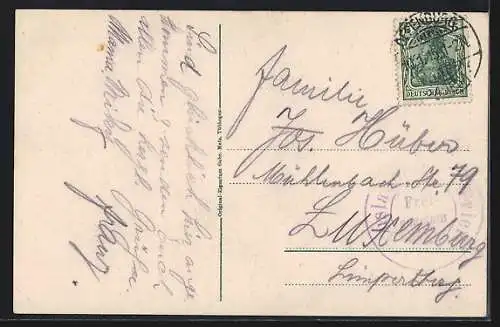 Sind glücklich hier ange
kommen & senden Euch
allen die herzl. Grüße
Mama
Franz
Original-Eigentum Gebr. Metz, Tübingen
DEUTSCHES REICH
Familie
Jos. Huber
Mühlenbach-Str. 79
Luxemburg
Limpertsberg